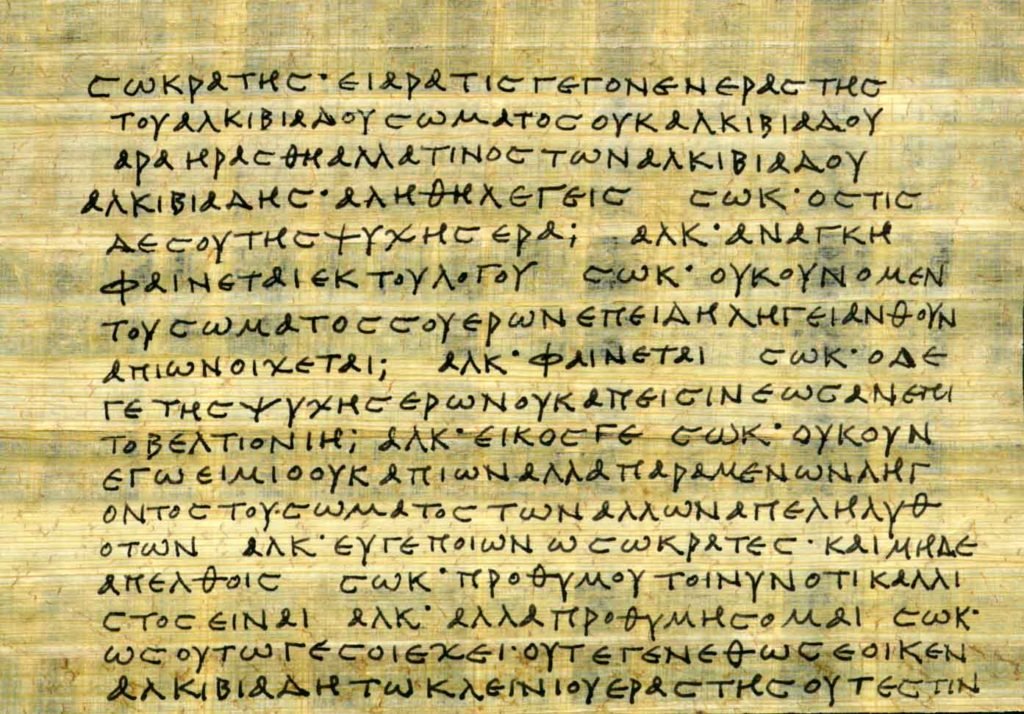 ϹωΚΡΑΤΗϹ· ΕΙΑΡΑΤΙϹΓΕΓΟΝΕΝΕΡΑϹΤΗϹ
ΤΟΥΑΛΚΙΒΙΑΔΟΥϹωΜΑΤΟϹΟΥΚΑΛΚΙΒΙΑΔΟΥ
ΑΡΑΗΡΑϹΘΗΑΛΛΑΤΙΝΟϹΤωΝΑΛΚΙΒΙΑΔΟΥ
ΑΛΚΙΒΙΑΔΗϹ·ΑΛΗΘΗΛΕΓΕΙϹ ϹωΚ·ΟϹΤΙϹ
ΔΕϹΟΥΤΗϹΨΥΧΗϹΕΡΑ; ΑΛΚ·ΑΝΑΓΚΗ
ΦΑΙΝΕΤΑΙΕΚΤΟΥΛΟΓΟΥ ϹωΚ· ΟΥΚΟΥΝΟΜΕΝ
ΤΟΥϹωΜΑΤΟϹϹΟΥΕΡωΝΕΠΕΙΔΗΛΗΓΕΙΑΝΘΟΥΝ
ΑΠΙωΝΟΙΧΕΤΑΙ; ΑΛΚ·ΦΑΙΝΕΤΑΙ ϹωΚ·ΟΔΕ
ΓΕΤΗϹΨΥΧΗϹΕΡωΝΟΥΚΑΠΕΙϹΙΝΕωϹΑΝΕΠΙ
ΤΟΒΕΛΤΙΟΝΙΗ; ΑΛΚ·ΕΙΚΟϹΓΕ ϹωΚ· ΟΥΚΟΥΝ
ΕΓωΕΙΜΙΟΟΥΚΑΠΙωΝΑΛΛΑΠΑΡΑΜΕΝωΝΛΗΓ
ΟΝΤΟϹΤΟΥϹωΜΑΤΟϹΤωΝΑΛΛωΝΑΠΕΛΗΛΥΘ
ΟΤωΝ ΑΛΚ·ΕΥΓΕΠΟΙωΝωϹωΚΡΑΤΕϹ·ΚΑΙΜΗΔΕ
ΑΠΕΛΘΟΙϹ ϹωΚ·ΠΡΟΘΥΜΟΥΤΟΙΝΥΝΟΤΙΚΑΛΛΙ
ϹΤΟϹΕΙΝΑΙ ΑΛΚ·ΑΛΛΑΠΡΟΘΥΜΗϹΟΜΑΙ ϹωΚ·
ωϹΟΥΤωΓΕϹΟΙΕΧΕΙ·ΟΥΤΕΓΕΝΕΘωϹΕΟΙΚΕΝ
ΑΛΚΙΒΙΑΔΗΤωΚΛΕΙΝΙΟΥΕΡΑϹΤΗϹΟΥΤΕϹΤΙΝ